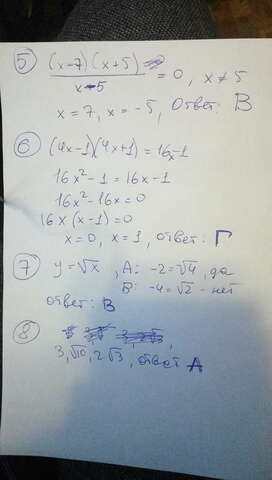 5 (x-7)(x+5) / x-5 = 0, x≠5
x=7, x=-5, Ответ: В
6 (4x-1)(4x+1)=16x-1
16x²-1=16x-1
16x²-16x=0
16x(x-1)=0
x=0, x=1, ответ: Г
7 y=√x, A: -2=√4, да
B: -4=√2 - нет
ответ: В
8
3, √10, 2√3, ответ А